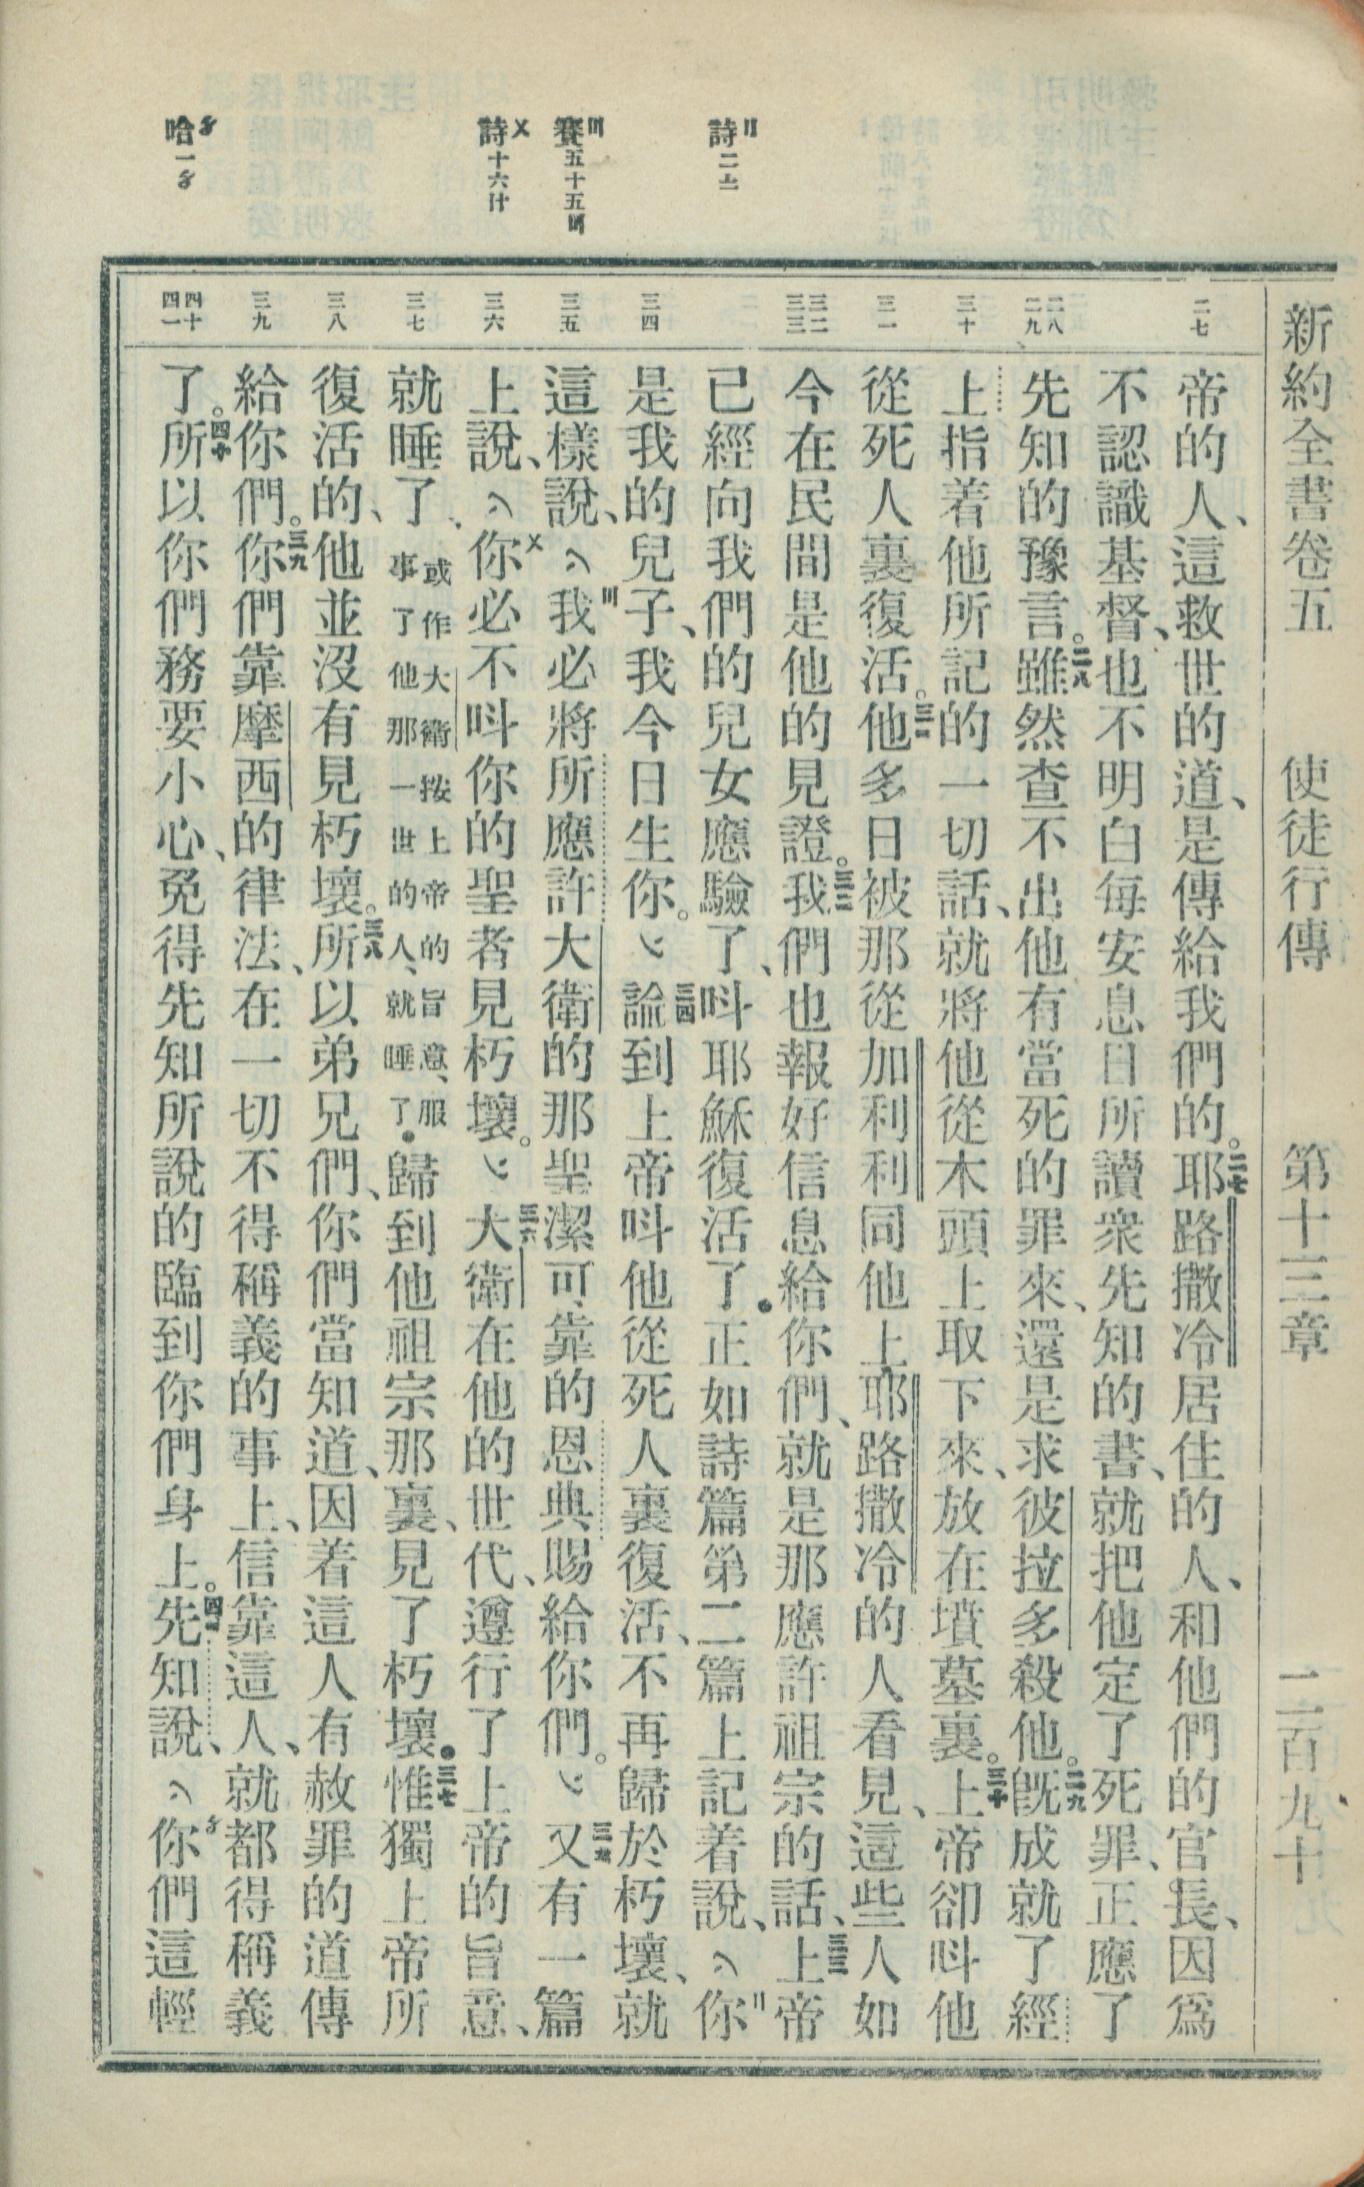 新約全書卷五　使徒行傳　第十三章　二百九十
二七
帝的人、這救世的道、是傳給我們的。二七耶路撒冷居住的人、和他們的官長、因爲
不認識基督、也不明白每安息日所讀衆先知的書、就把他定了死罪、正應了
二八 二九
先知的豫言。二八雖然查不出他有當死的罪來、還是求彼拉多殺他。二九旣成就了經
三十
上指着他所記的一切話、就將他從木頭上取下來、放在墳墓裏。三十上帝卻呌他
三一
從死人裏復活。三一他多日被那從加利利同他上耶路撒冷的人看見、這些人如
三二 三三
今在民間是他的見證。三二我們也報好信息給你們、就是那應許祖宗的話、三三上帝
詩二
已經向我們的兒女應驗了、呌耶穌復活了．正如詩篇第二篇上記着說、〈你
三四
是我的兒子、我今日生你。〉三四論到上帝呌他從死人裏復活、不再歸於朽壞、就
賽五十五
三五
這樣說、〈我必將所應許大衛的那聖潔可靠的恩典、賜給你們。〉三五又有一篇
詩十六
三六
上說、〈你必不呌你的聖者見朽壞。〉三六大衛在他的世代、遵行了上帝的旨意、
三七
就睡了、或作大衛按上帝的旨意、服事了他那一世的人、就睡了．歸到他祖宗那裏、見了朽壞．三七惟獨上帝所
三八
復活的、他並沒有見朽壞。三八所以弟兄們、你們當知道、因着這人有赦罪的道傳
三九
給你們。三九你們靠摩西的律法、在一切不得稱義的事上、信靠這人、就都得稱義
哈一
四十 四一
了。四十所以你們務要小心、免得先知所說的臨到你們身上。四一先知說、〈你們這輕